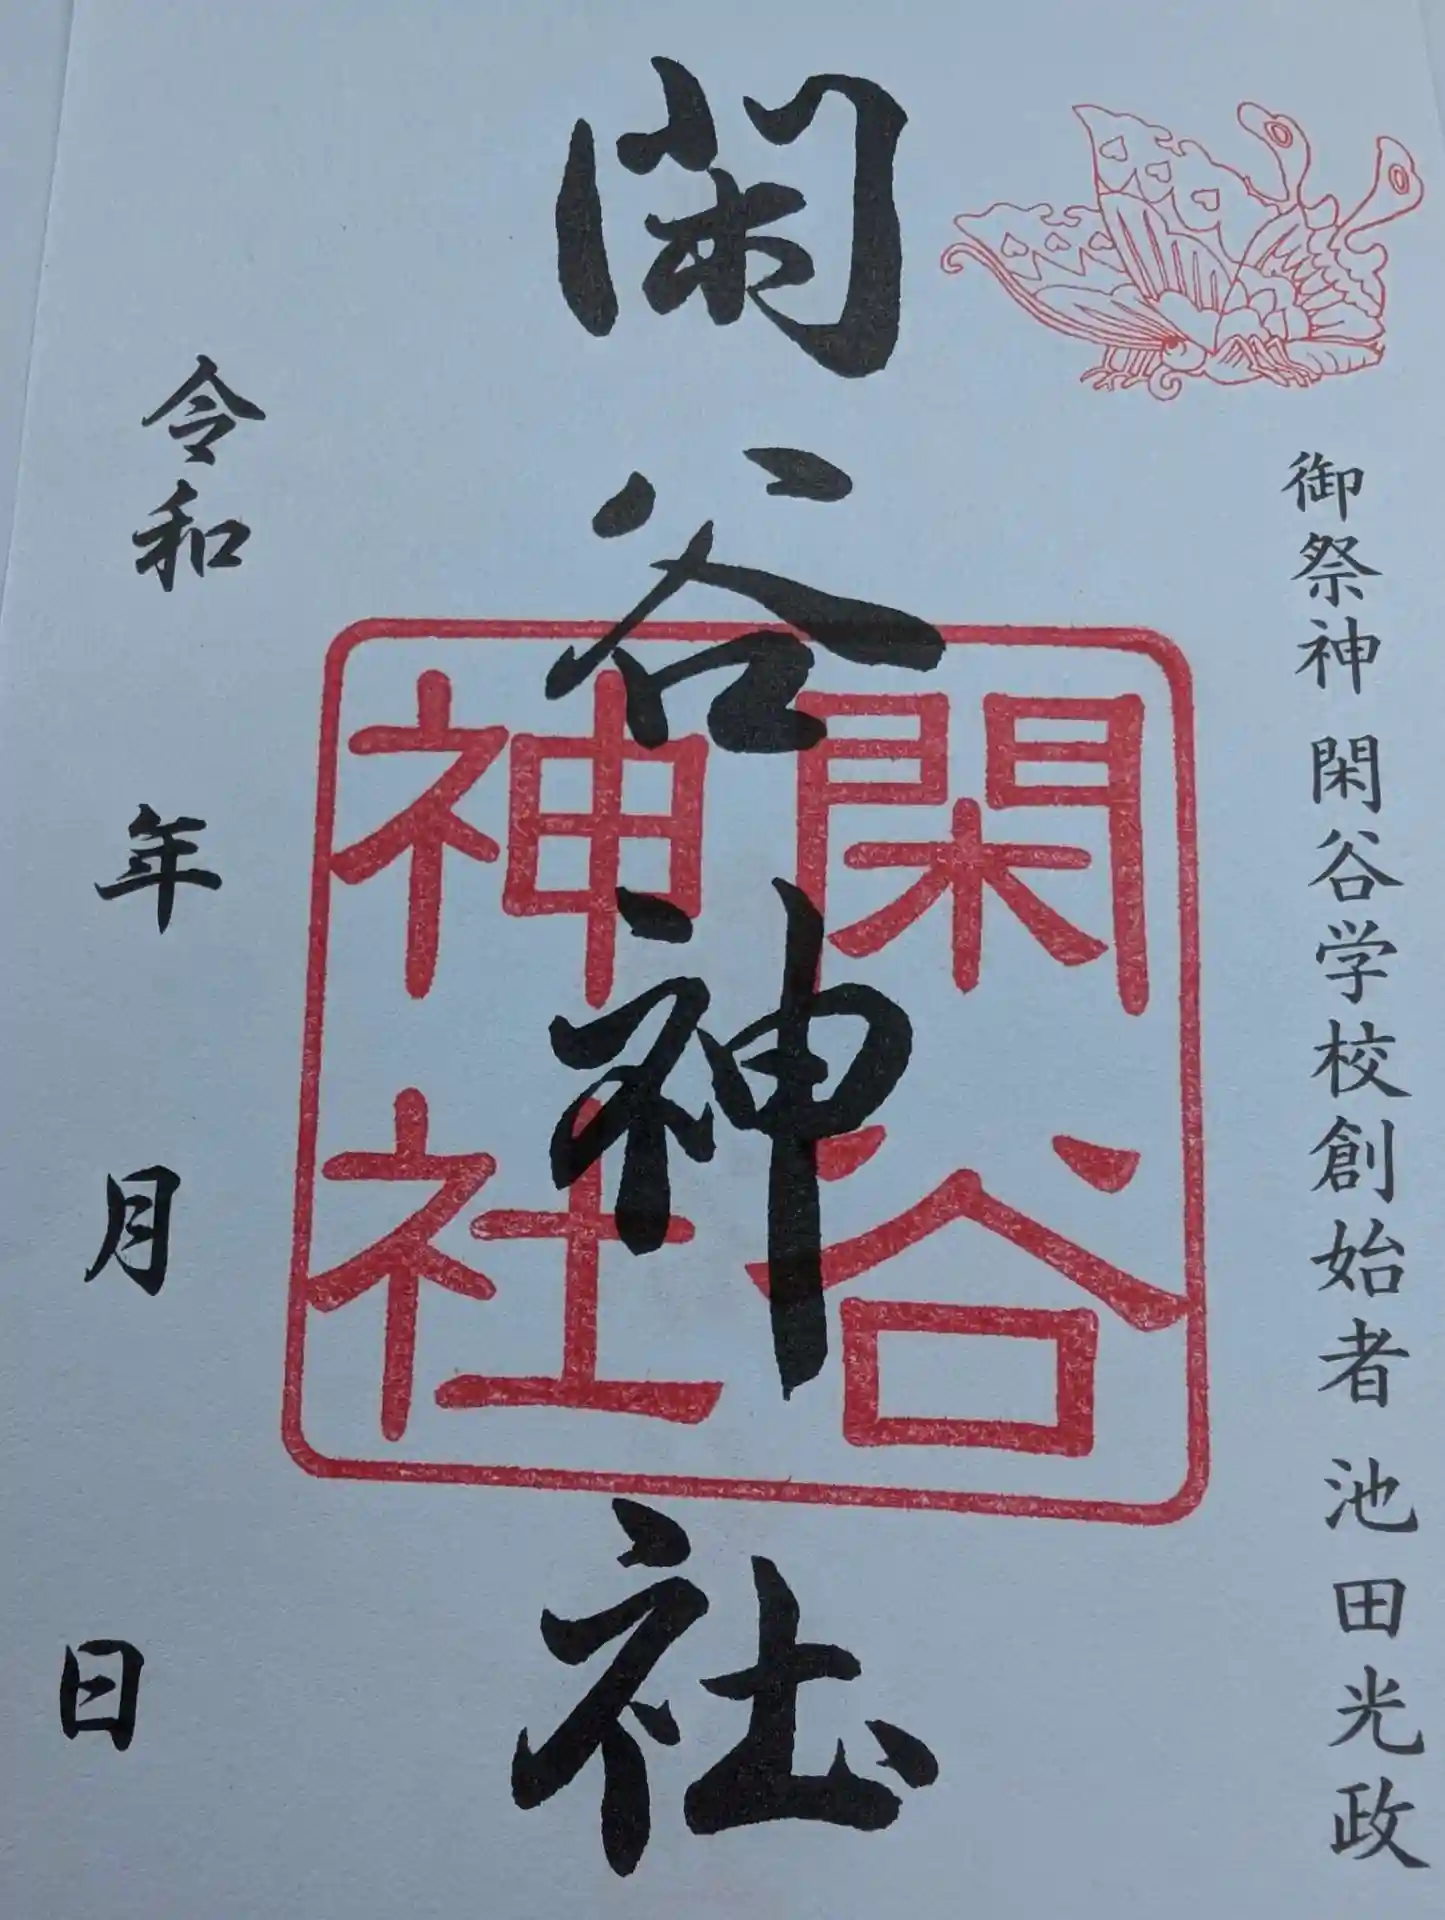 御祭神 閑谷学校創始者 池田光政
閑谷神社
閑谷
神社
令和 年 月 日